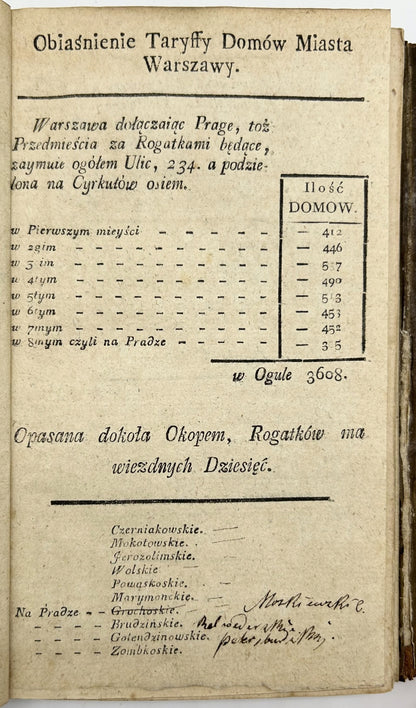 Obiaśnienie Taryffy Domów Miasta
Warszawy.
Warszawa dołączaiąc Pragę, toż
Przedmieścia za Rogatkami będące,
zaymuie ogółem Ulic, 234. a podzie-
lona na Cyrkułów osiem.
Ilość
DOMOW.
w Pierwszym mieyści - - - - - — 412
w 2gim - - - - - - - - — 446
w 3 im - - - - - - - - —
w 4tym - - - - - - - - — 490
w 5tym - - - - - - - - —
w 6tym - - - - - - - - — 453
w 7mym - - - - - - - - — 452
w 8mym czyli na Pradze - - - - —
w Ogule 3608.
Opasana dokoła Okopem, Rogatków ma
wiezdnych Dziesięć.
Czerniakowskie.
Mokotowskie.
Jerozolimskie.
Wolskie
Powąskoskie.
Marymonckie.
Na Pradze - - Grochoskie. Moskiewskie.
- - - - Brudzińskie.
- - - - Golendzinowskie. petersburskie
- - - - Zombkoskie.